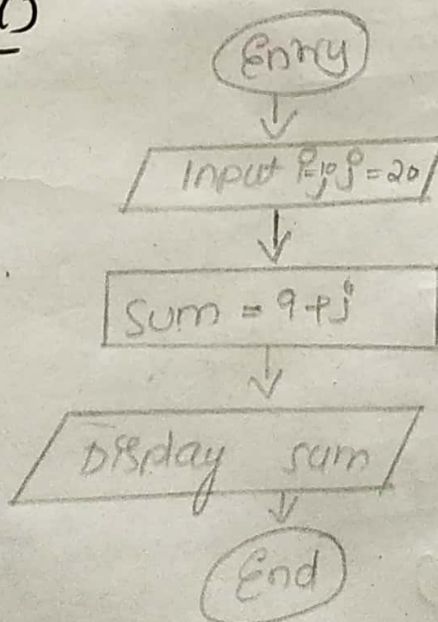 Entry
Input i=10, j=20
Sum = i+j
Display sum
End